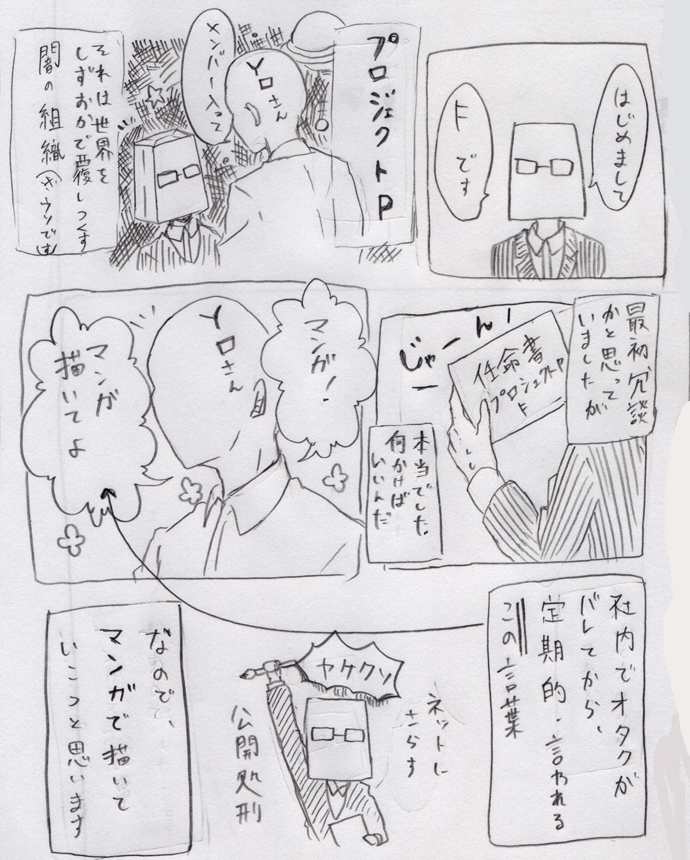 はじめまして
F です
プロジェクトP
メンバー入って
Yロさん
それは世界を
しずおかで覆しつくす
闇の組織
最初冗談
かと思って
いましたが
じゃーん!
任命書
プロジェクトP
F
本当でした。
何かけば
いいんだ
マンガ!
Yロさん
マンガ
描いてよ
社内でオタクが
バレてから、
定期的に言われる
この言葉
ヤケクソ
ネットに
さらす
公開処刑
なので、
マンガで描いて
いこうと思います